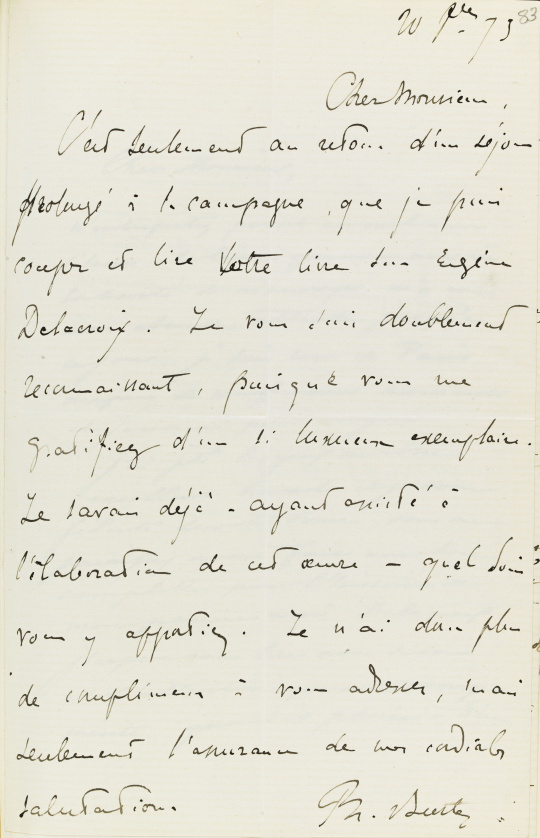 83
20 9bre 73
Cher Monsieur,
C'est seulement au retour d'un séjour
prolongé à la campagne, que je puis
couper et lire votre livre sur Eugène
Delacroix. Je vous suis doublement
reconnaissant, puisque vous me
gratifiez d'un si luxueux exemplaire.
Je savais déjà - ayant assisté à
l'élaboration de cet œuvre - quel soin
vous y apportiez. Je n'ai donc plus
de compliments à vous adresser, mais
seulement l'assurance de mes cordiales
salutations.
Ph. Burty